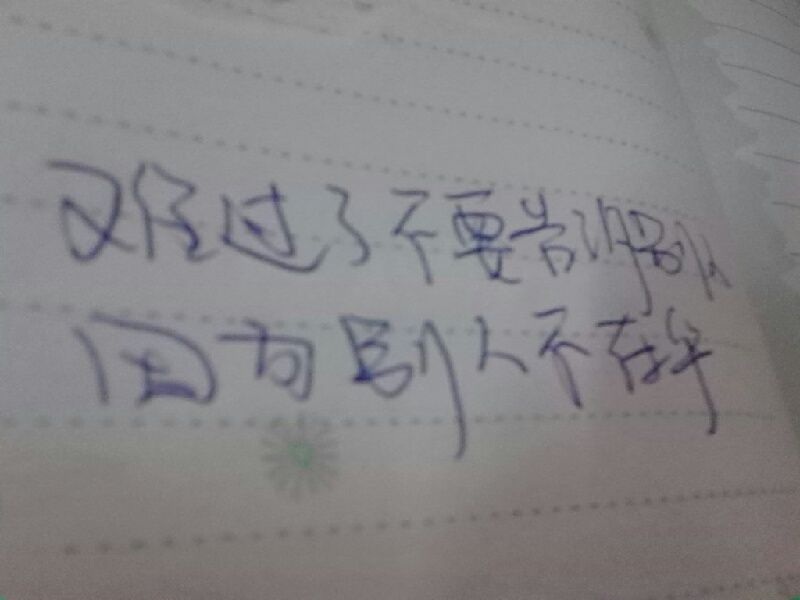 难过了不要告诉别人
因为别人不在乎